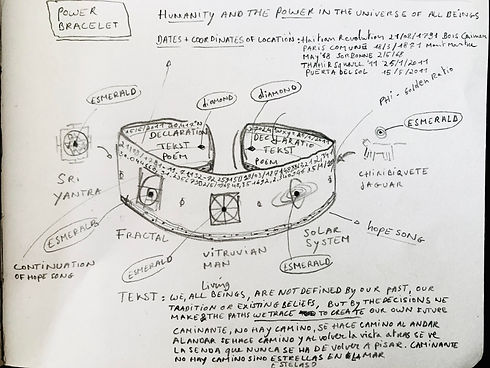 POWER
BRACELET
HUMANITY AND THE POWER IN THE UNIVERSE OF ALL BEINGS
DATES + COORDINATES OF LOCATION: Haitian Revolution 21/08/1791 Bois Caiman
PARIS COMUNE 18/3/1871 Montmartre
MAY '68 SORBONNE 2/5/68
25/1/2011
PUERTA DEL SOL 15/5/2011
EMERALD
diamond
diamond
PHI - Golden Ratio
EMERALD
DECLARATION
TEKST
POEM
DECLARATIO
TEKST
POEM
SRI
YANTRA
CHIRIBIQUETE
JAGUAR
EMERALD
FRACTAL
EMERALD
VITRUVIAN
MAN
Living
SOLAR
SYSTEM
EMERALD
HOPE SONG
CONTINUATION
OF HOPE SONG
TEKST: WE, ALL BEINGS, ARE NOT DEFINED BY OUR PAST, OUR
TRADITION OR EXISTING BELIEFS, BUT BY THE DECISIONS WE
MAKE & THE PATHS WE TRACE TO CREATE OUR OWN FUTURE
CAMINANTE, NO HAY CAMINO, SE HACE CAMINO AL ANDAR
AL ANDAR SE HACE CAMINO Y AL VOLVER LA VISTA ATRAS SE VE
LA SENDA QUE NUNCA SE HA DE VOLVER A PISAR. CAMINANTE
NO HAY CAMINO SINO ESTRELLAS EN LA MAR